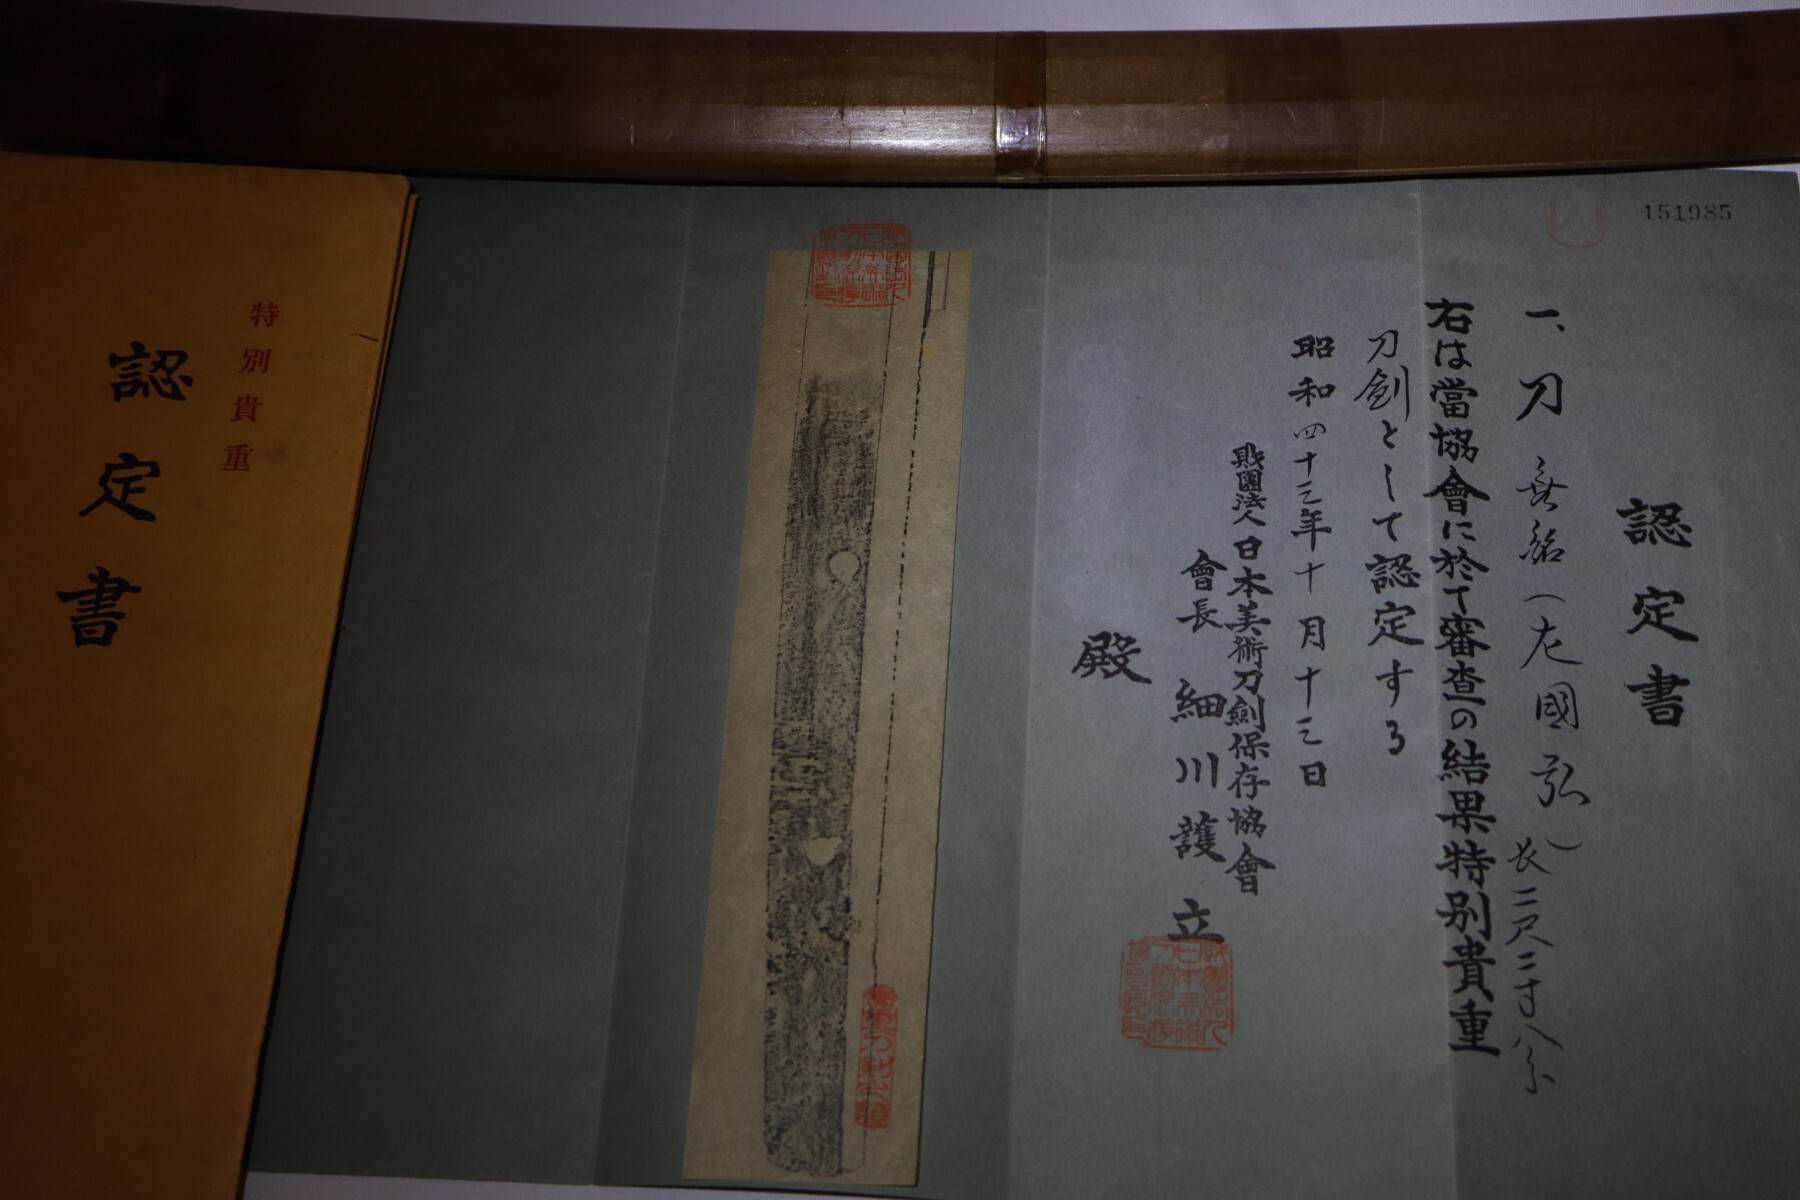 151985
認定書
一、刀 無銘(左國弘)長二尺二寸八分
右は當協會に於て審査の結果特別貴重
刀劍として認定する
昭和四十三年十月十三日
財團法人日本美術刀劍保存協會
會長 細川護立
殿
特別貴重
認定書